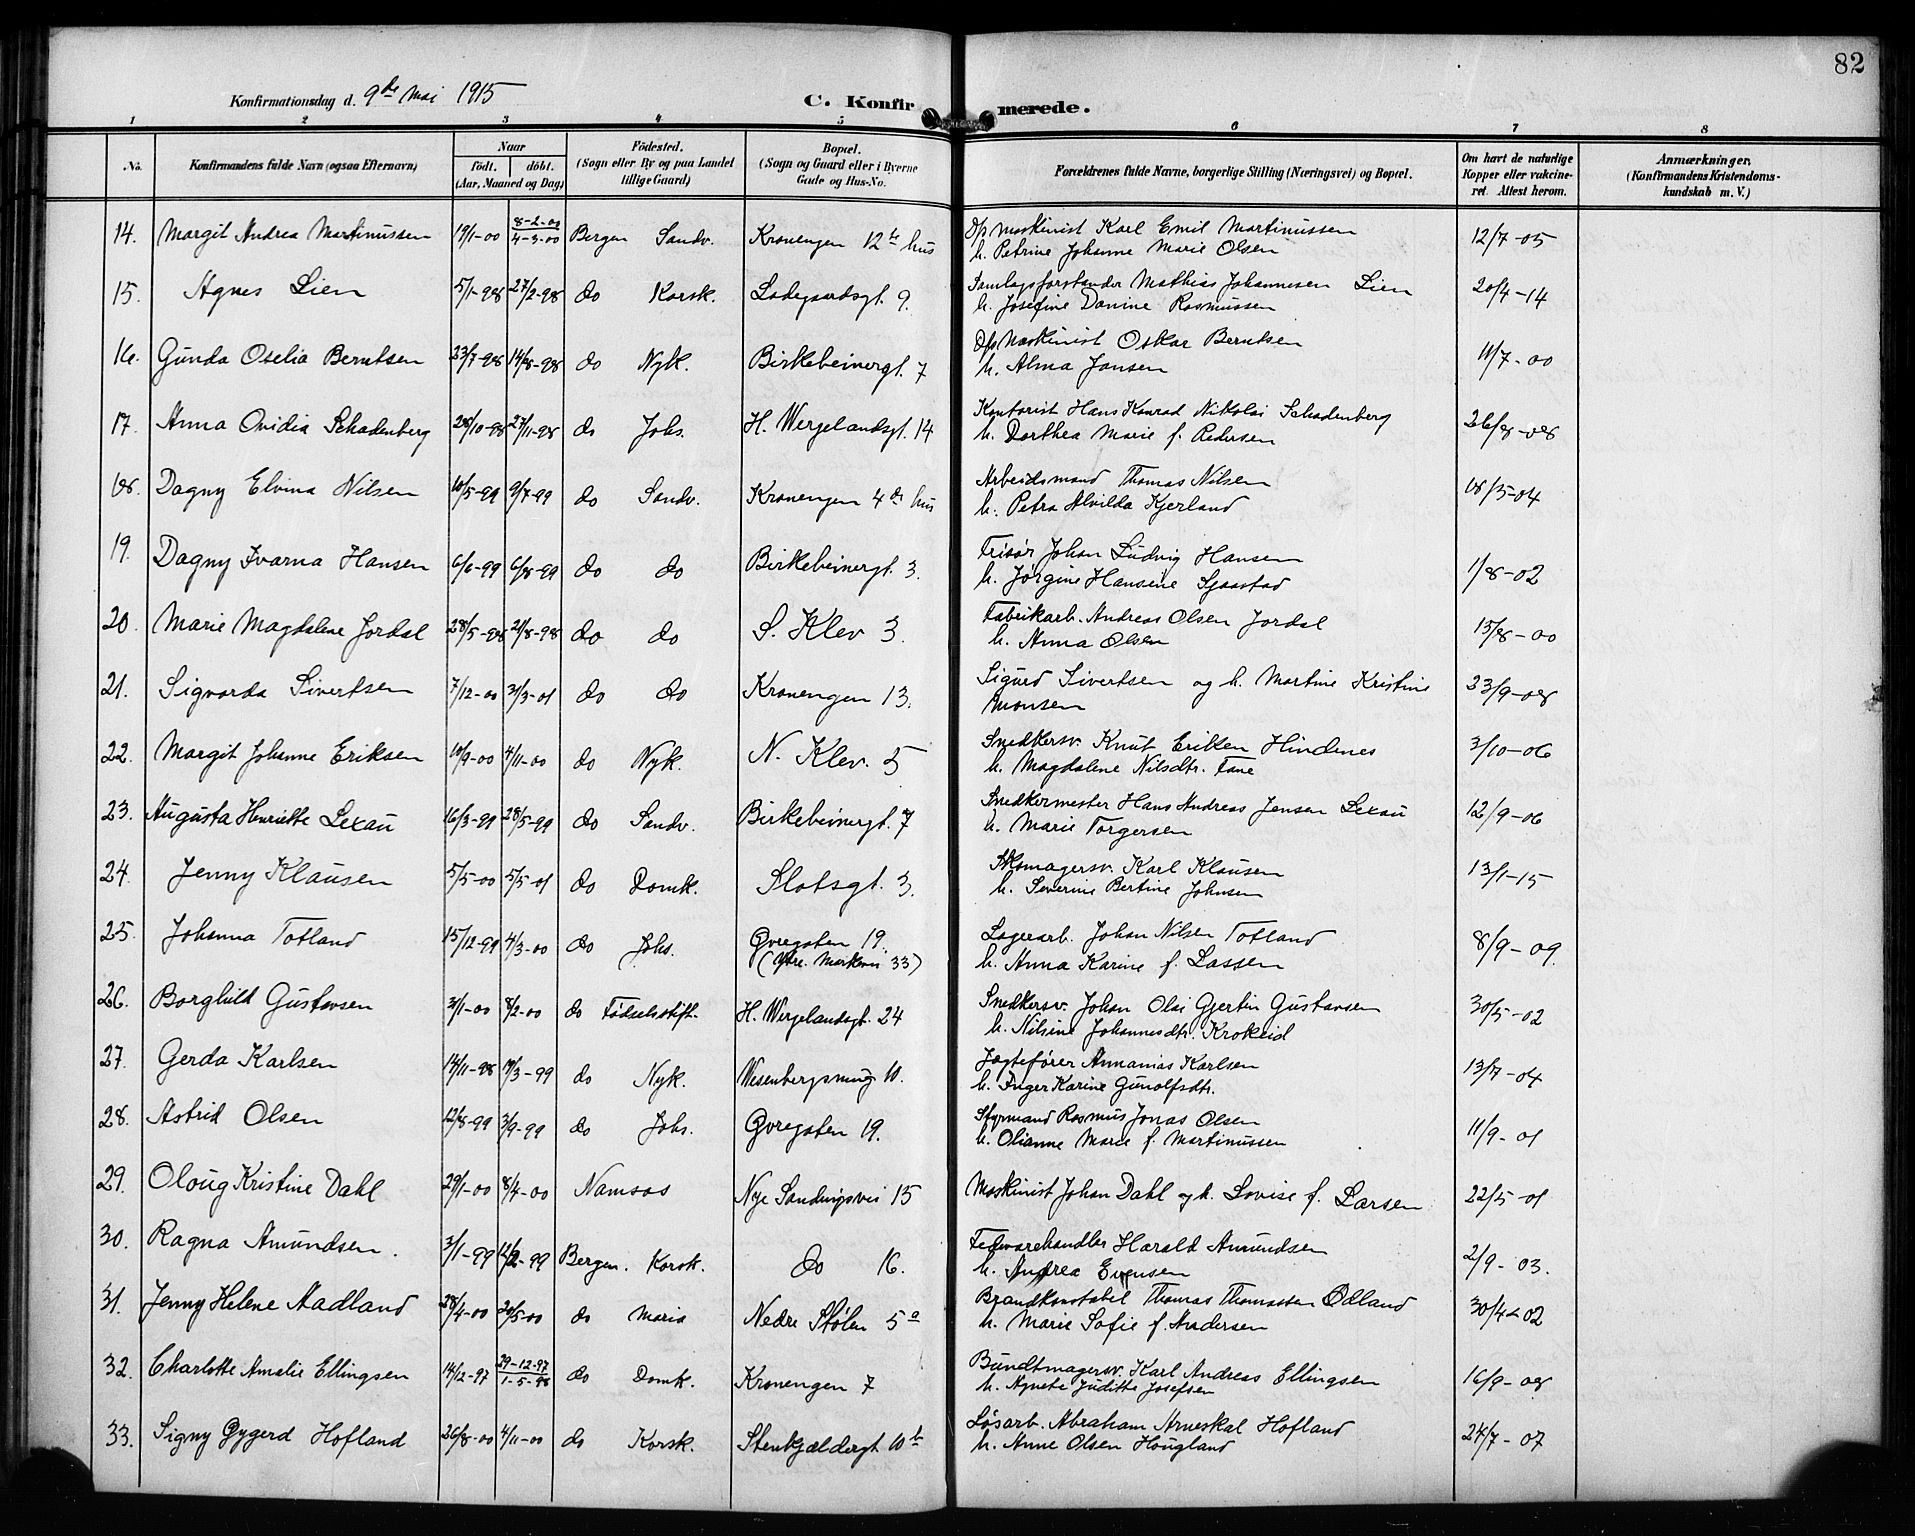 82
Konfirmationsdag d. 9de Mai 1915
C. Konfirmerede.
1 2 3 4 5 6 7 8
No. Konfirmandens fulde Navn (ogsaa Efternavn) Naar født. døbt. (Aar, Maaned og Dag) Födested. (Sogn eller By og paa Landet tillige Gaard) Bopæl. (Sogn og Gaard eller i Byerne Gade og Hus-No. Forældrenes fulde Navne, borgerlige Stilling (Næringsvei) og Bopæl. Om havt de naturlige Kopper eller vakcineret. Attest herom. Anmærkninger. (Konfirmandens Kristendomskundskab m. V.)
14. Margit Andrea Martinussen 19/1-00 8-2-00 4-3-00 Bergen Sandv. Kronengen 12te hus D/p maskinist Karl Emil Martinussen 12/7-05
h. Petrine Johanne Marie Olsen
15. Agnes Lien 5/1-98 27/2-98 do Korsk. Ladegaardsgt. 9. Samlagsforstander Mathias Johannesen Lien 20/4-14
h. Josefine Danine Rasmussen
16. Gunda Oselia Berntsen 23/7-98 14/8-98 do Nyk. Birkebeinergt. 7 D/p Maskinist Oskar Berntsen 11/7-00
h. Alma Jansen
17. Anna Ovidia Schadenberg 28/10-98 27/11-98 do Johs. H. Wergelandsgt. 14 Kontorist Hans Konrad Nikolai Schadenberg 26/8-08
h. Dorthea Marie f. Pedersen
18. Dagny Elvina Nilsen 10/5-99 9/7-99 do Sandv. Kronengen 4de hus Arbeidsmand Thomas Nilsen 18/5-04
h. Petra Alvilda Kjerland
19. Dagny Ivarna Hansen 6/6-99 6/8-99 do do Birkebeinergt. 3. Frisør Johan Ludvig Hansen 1/8-02
h. Jørgine Hansine Sjaastad
20. Marie Magdalene Jordal 28/5-98 21/8-98 do do S. Klev 3. Fabrikarb. Andreas Olsen Jordal 15/8-00
h. Anna Olsen
21. Sigvarda Sivertsen 7/12-00 31/3-01 do do Kronengen 13. Sigurd Sivertsen og h. Martine Kristine 23/9-08
Monsen
22. Margit Johanne Eriksen 10/9-00 4/11-00 do Nyk. N. Klev. 5 Snedkersv. Knut Eriksen Hindenes 3/10-06
h. Magdalene Nilsdtr. Fane
23. Augusta Henriette Lexau 16/3-99 28/5-99 do Sandv. Birkebeinergt. 7 Snedkermester Hans Andreas Jensen Lexau 12/9-06
h. Marie Torgersen
24. Jenny Klausen 5/5-00 5/5-01 do Domk. Slotsgt. 3. Skomagersv. Karl Klausen 13/1-15
h. Severine Bertine Johnsen
25. Johanna Totland 15/12-99 4/3-00 do Johs. Øvregaten 19. Lagerarb. Johan Nilsen Totland 8/9-09.
(Ytre. Markevei 33) h. Anna Karine f. Lassen
26. Borghild Gustavsen 31/1-00 8/2-00 do Fødselsstift. H. Wergelandsgt. 24 Snedkersv. Johan Olai Gjertin Gustavsen 30/5-02
h. Nilsine Johannesdtr. Krokeid
27. Gerda Karlsen 14/11-98 19/3-99 do Nyk. Wesenbergsmug 10. Jægtefører Annanias Karlsen 13/7-04
h. Inger Karine Gunolfsdtr.
28. Astrid Olsen 12/8-99 3/9-99 do Johs. Øvregaten 19. Styrmand Rasmus Jonas Olsen 11/9-01
h. Olianne Marie f. Martinussen
29. Oloug Kristine Dahl 29/1-00 8/4-00 Namsos Nye Sandvigsvei 15 Maskinist Johan Dahl og h. Lovise f. Larsen 22/5-01
30. Ragna Amundsen. 3/1-99 12/2-99 Bergen. Korsk. do 16. Fedevarehandler Harald Amundsen 2/9-03.
h. Andrea Evensen
31. Jenny Helene Aadland 28/4-00 20/5-00 do Maria Nedre Stølen 5a Brandkonstabel Thomas Thomassen Ødland 30/4-02
h. Marie Sofie f. Andersen
32. Charlotte Amalie Ellingsen 14/12-97 29-12-97 1-5-98 do Domk. Kronengen 7 Bundtmagersv. Karl Andreas Ellingsen 16/9-08
h. Agnete Juditte Josefsen
33. Signy Gygerd Hofland 26/8-00 4/11-00 do Korsk. Stenkjeldergt. 10b Løsarb. Abraham Arneskal Hofland 24/7-07
h. Anne Olsen Hougland